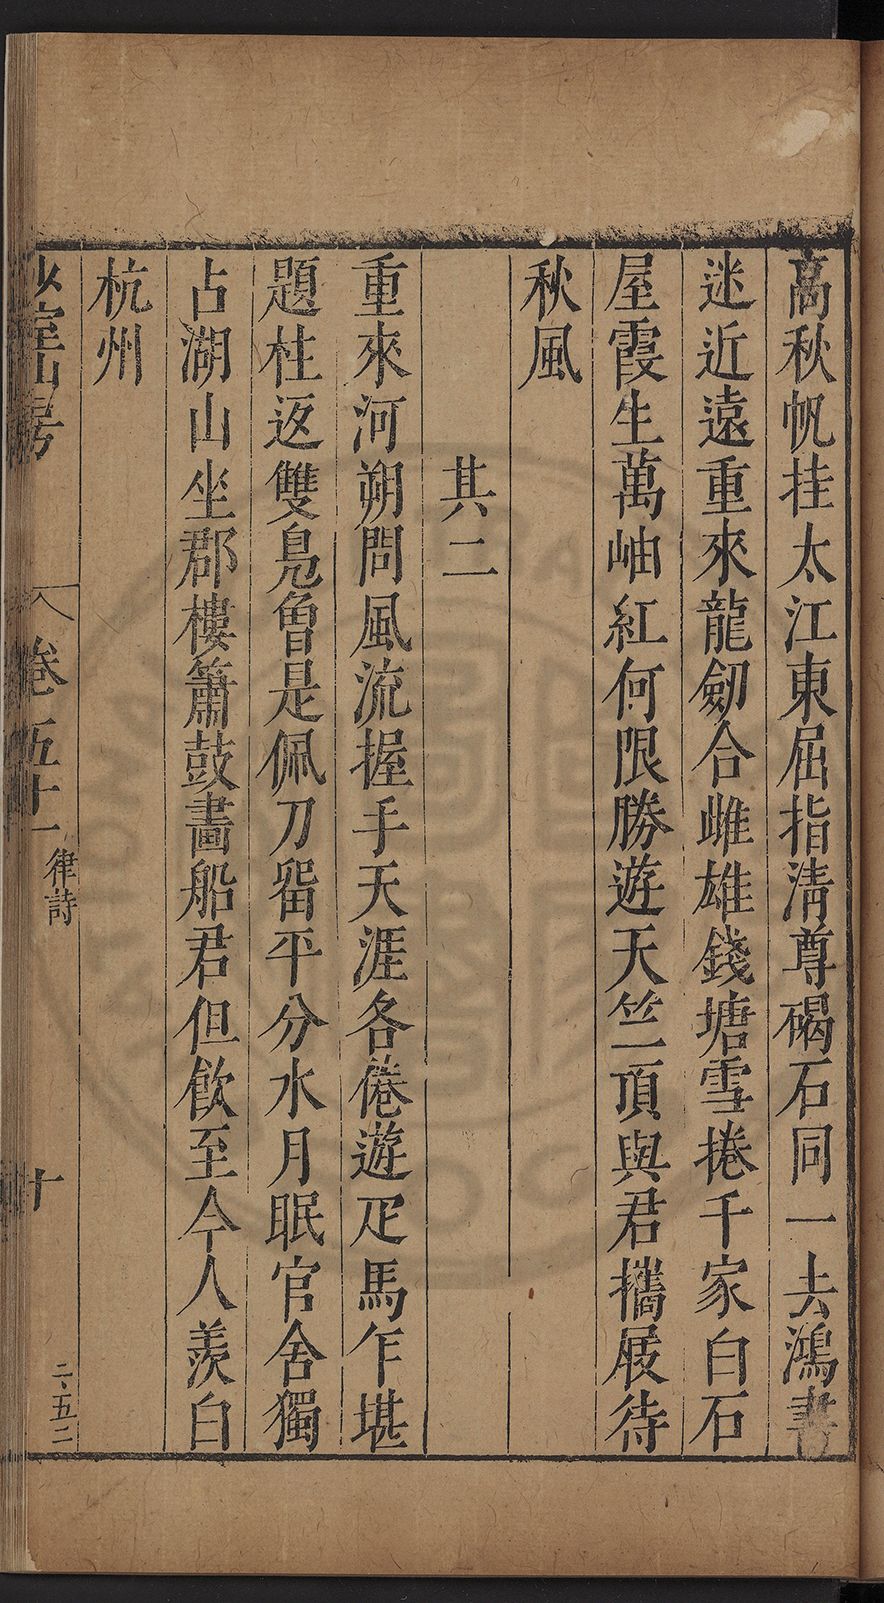 高秋帆挂太江東屈指淸尊碣石同一去鴻書
迷近遠重來龍劒合雌雄錢塘雪捲千家白石
屋霞生萬岫紅何限勝遊天竺頂與君攜屐待
秋風
其二
重來河朔問風流握手天涯各倦遊疋馬乍堪
題柱返雙鳧曾是佩刀畱平分水月眠官舍獨
占湖山坐郡樓簫鼓畵船君但飲至今人羨白
杭州
少室山房
卷五十一
律詩
十
二、五二